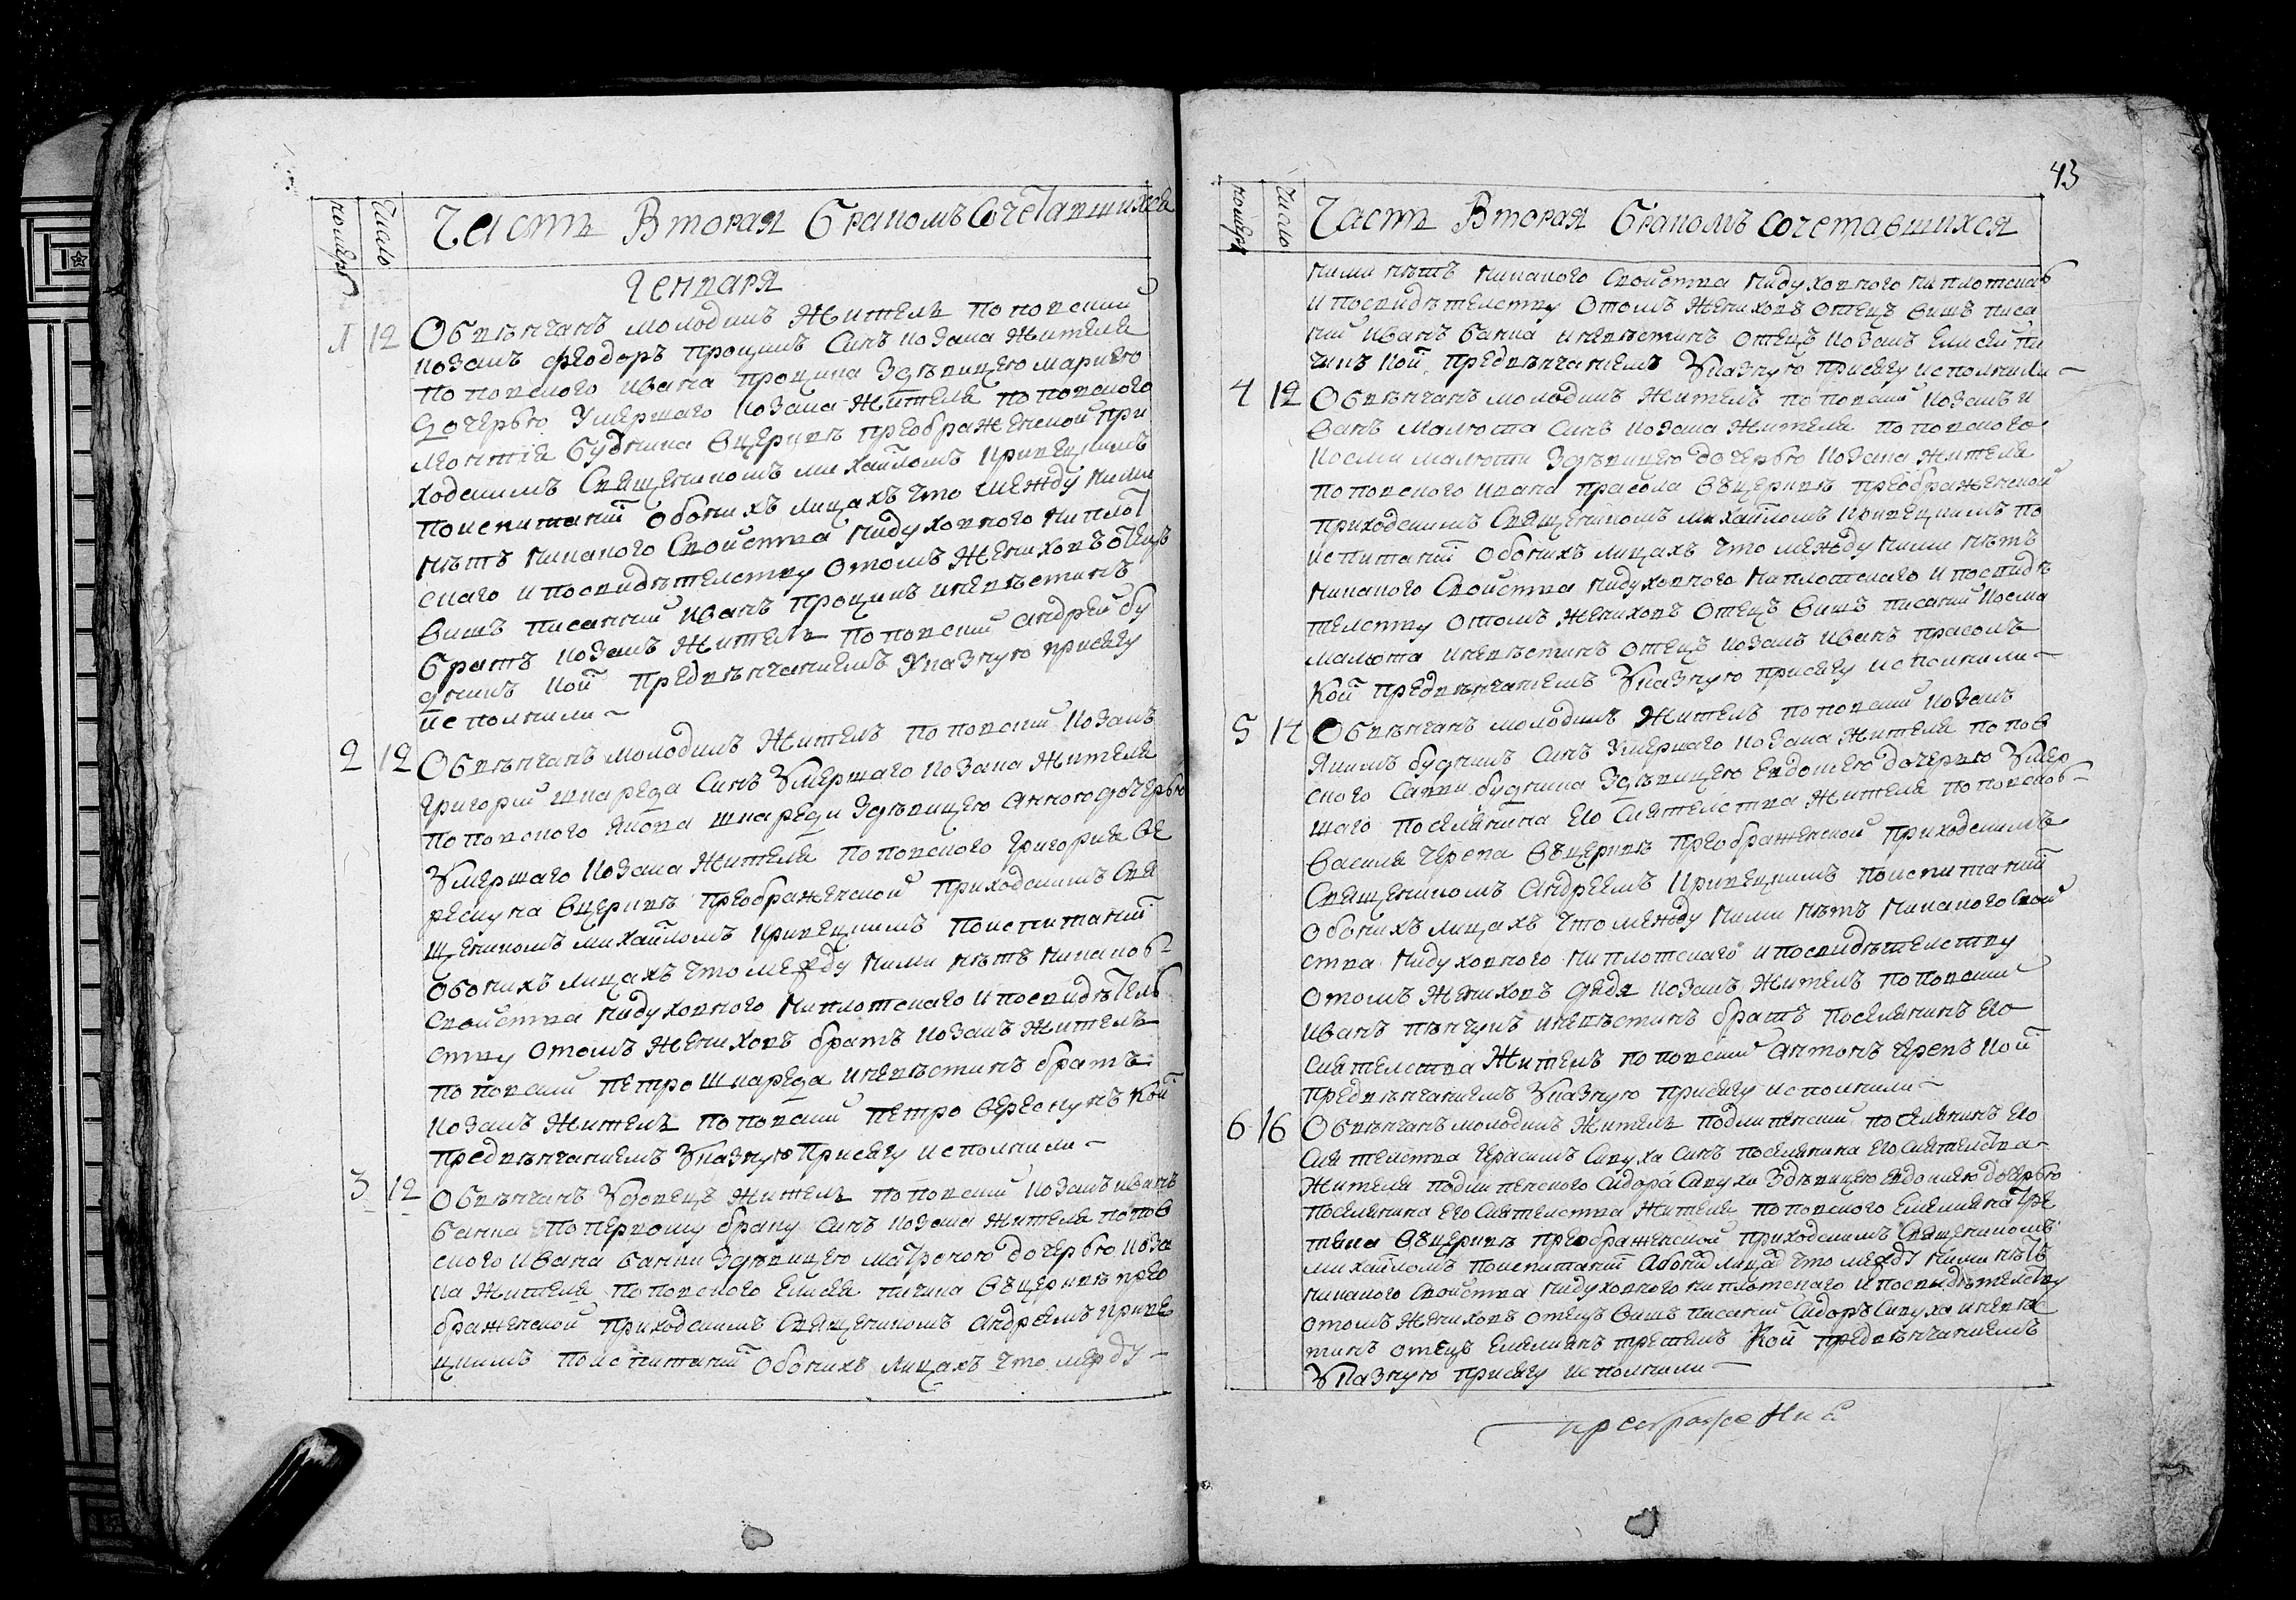 номеръ
Число
Часть Вторая бракомъ Сочетавшихся
Генваря
1 12 Обвѣнчанъ молодикъ Житель поповский
козакъ Феодоръ Процикъ Синъ козака Жителя
поповского Ивана Процика Здѣвицею Мариею
дочерью Умершаго козака Жителя поповского
Леонтия Будника Вцерквѣ преображенской при
ходскимъ Священикомъ михайломъ Кривецкимъ
поиспитаний обоихъ лицахъ что между ними
нѣтъ никакого Свойства нидуховного ниплот
скаго и посвидѣтелству отомъ Жениховъ отецъ
вишъ писанний Иванъ Процикъ иневѣстинъ
братъ козакъ Житель поповский Андрей бу
дникъ кой предвѣнчаниемъ Указную присягу
исполнили
2 12 Обвѣнчанъ молодикъ Житель поповский козакъ
Григорий шкареда Синъ Умершаго козака Жителя
поповского Якова шкареди Здѣвицею Анною дочерью
Умершаго козака Жителя поповского Григория Ве
рескуна вцерквѣ преображенской приходскимъ Свя
щеникомъ михайломъ Кривецкимъ поиспитаний
обоихъ лицахъ что между ними нѣтъ никаког
Свойства нидуховного ниплотскаго и посвидѣтель
ству отомъ Жениховъ братъ козакъ Житель
поповский петро шкареда иневѣстинъ братъ
козакъ Житель поповский петро верескунъ кой
предвѣнчаниемъ Указную присягу исполнили
3 12 Обвѣнчанъ Удовецъ Житель поповский козакъ иванъ
Санка поперкому браку Синъ козака Жителя попов
ского Ивана Санки Здѣвицею матроною дочерью коза
ка Жителя поповского Елисея пичка вѣцерквѣ прео
браженской приходскимъ Священикомъ Андреемъ криве
цкимъ поиспитаний обоихъ лицахъ что между
43
номеръ
Число
Часть Вторая бракомъ сочетавшихся
ними нѣтъ никакого Свойства нидуховного ниплотског
и посвидѣтелству отомъ Жениховъ отецъ вишъ писа
ний Иванъ Санка иневѣстинъ отецъ козакъ Елисей пи
чикъ кой предвѣнчаниемъ Указную присягу исполнили
4 12 Обвѣнчанъ молодикъ Житель поповский козакъ и
ванъ малюта Синъ козака Жителя поповского
Косми малюти Здѣвицею дочерью козака Жителя
поповского Ивана прасола вѣцерквѣ преображенской
приходскимъ Священикомъ михайломъ Кривецкимъ по
испитаний обоихъ лицахъ что между ними нѣтъ
никакого Свойства нидуховного ниплотскаго и посвидѣ
телству отомъ Жениховъ отецъ вишъ писаний Косма
малюта иневѣстинъ отецъ козакъ иванъ прасолъ
кой предвѣнчаниемъ Указную присягу исполнили
5 14 Обвѣнчанъ молодикъ Житель поповский козакъ
Якимъ будникъ Синъ Умершаго козака Жителя попов
ского Савки будника Здѣвицею Евдокиею дочерию Умер
шаго поселянина его Сиятелства Жителя поповског
василя Черепа вѣцерквѣ преображенской приходскимъ
Священикомъ Андреемъ Кривецкимъ поиспитаний
обоихъ лицахъ что между ними нѣтъ никакого Свой
ства нидуховного ниплотскаго и посвидѣтелству
отомъ Жениховъ дядя козакъ Житель поповский
иванъ иневѣстинъ братъ поселянинъ его
Сиятелства Житель поповский антонъ Черепъ кой
предвѣнчаниемъ Указную присягу исполнили
6 16 Обвѣнчанъ молодикъ Житель подлипенский поселянинъ его
Сиятелства Герасимъ Сируха Синъ поселянина его Сиятелства
Жителя подлипенского Сидора Сирухи Здѣвицею Евдокиею дочерью
поселянина его Сиятелства Жителя поповского Емеляна Тре
тяка вѣцерквѣ преображенской приходскимъ Священикомъ
михайломъ поиспитаний лицах что между ними нѣтъ
никакого Свойства нидуховного ниплотскаго и посвидѣтелству
отомъ Жениховъ отецъ вишъ писаний Сидоръ Сируха иневѣс
тинъ отецъ Емелянъ третякъ кой предвѣнчаниемъ
Указную присягу исполнили
преображения